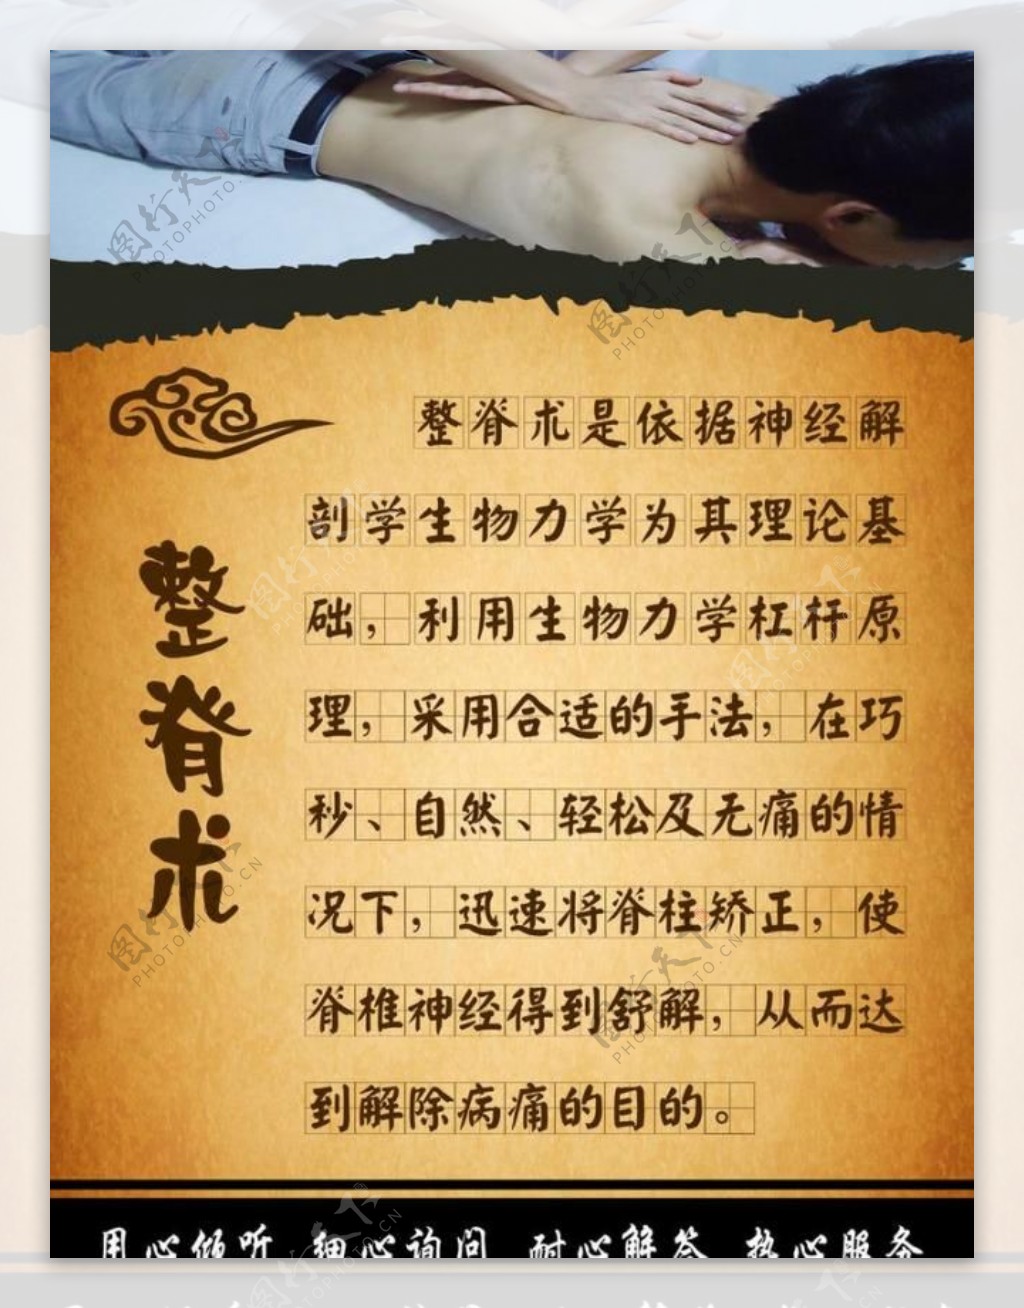 整脊术
整脊术是依据神经解
剖学生物力学为其理论基
础，利用生物力学杠杆原
理，采用合适的手法，在巧
秒、自然、轻松及无痛的情
况下，迅速将脊柱矫正，使
脊椎神经得到舒解，从而达
到解除病痛的目的。
用心倾听 细心询问 耐心解答 热心服务